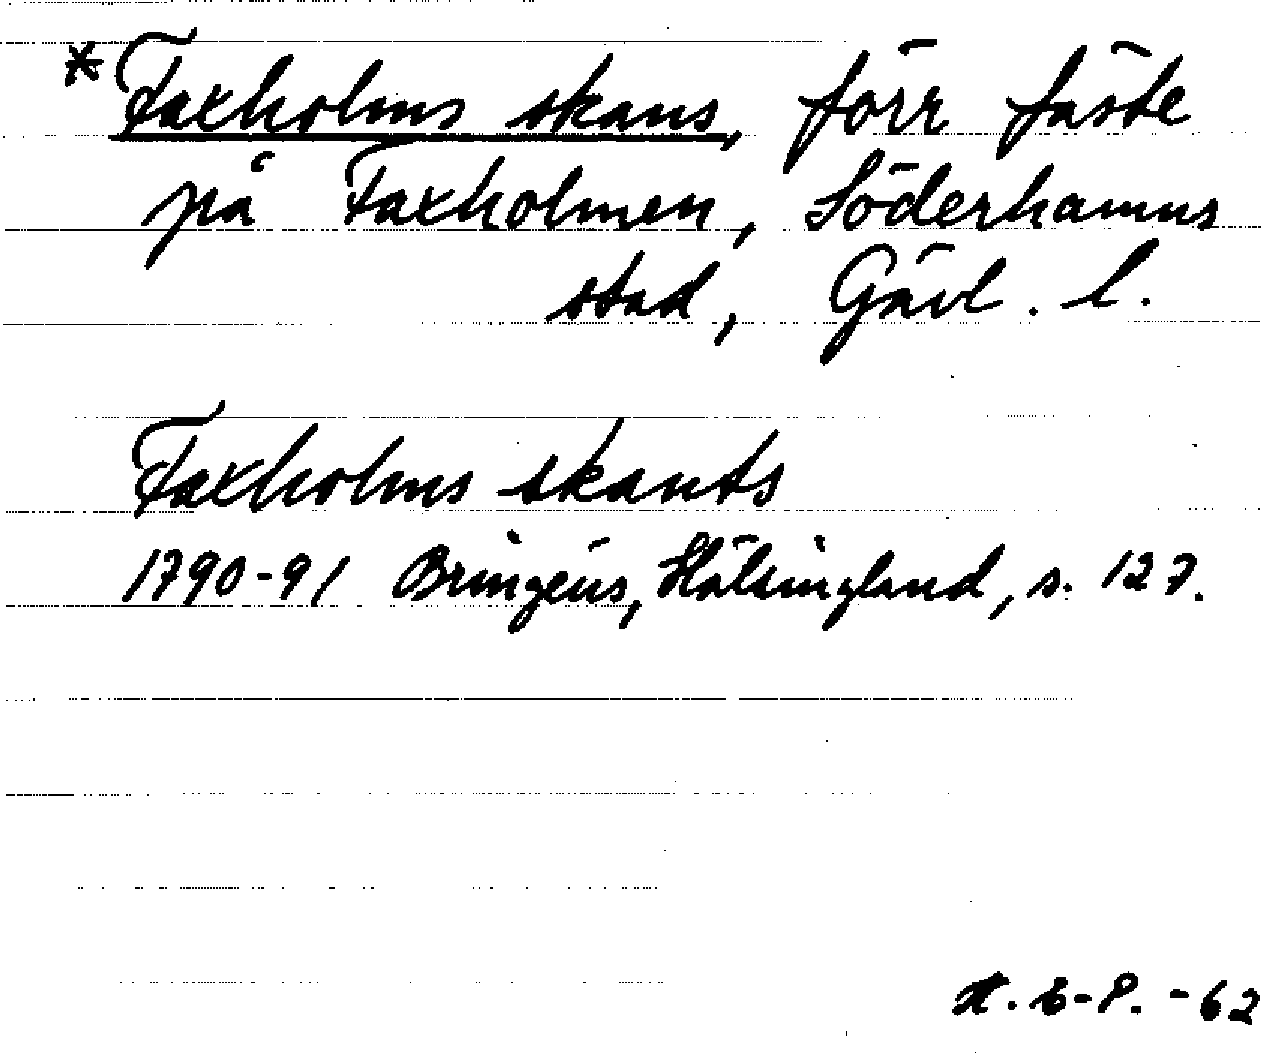 *Faxholms skans, förr fäste
på Faxholmen, Söderhamns
stad, Gävl. l.
Faxholms skants
1790-91 Bringéus, Hälsingland, s. 127.
H. E-P. -62